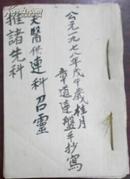 公元一九七八年戊午歲桂月
章道連盤手抄寫
天醫保連科召靈
推諸先科